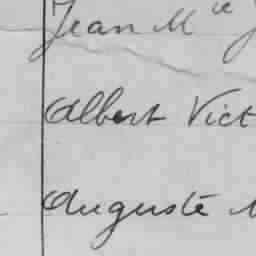 Jean Mie J
Albert Vict
Auguste